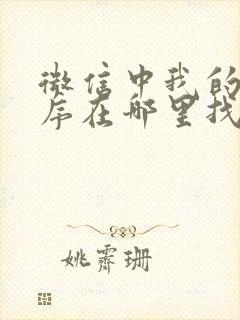 微信中我的
序在哪里找
姚霁珊